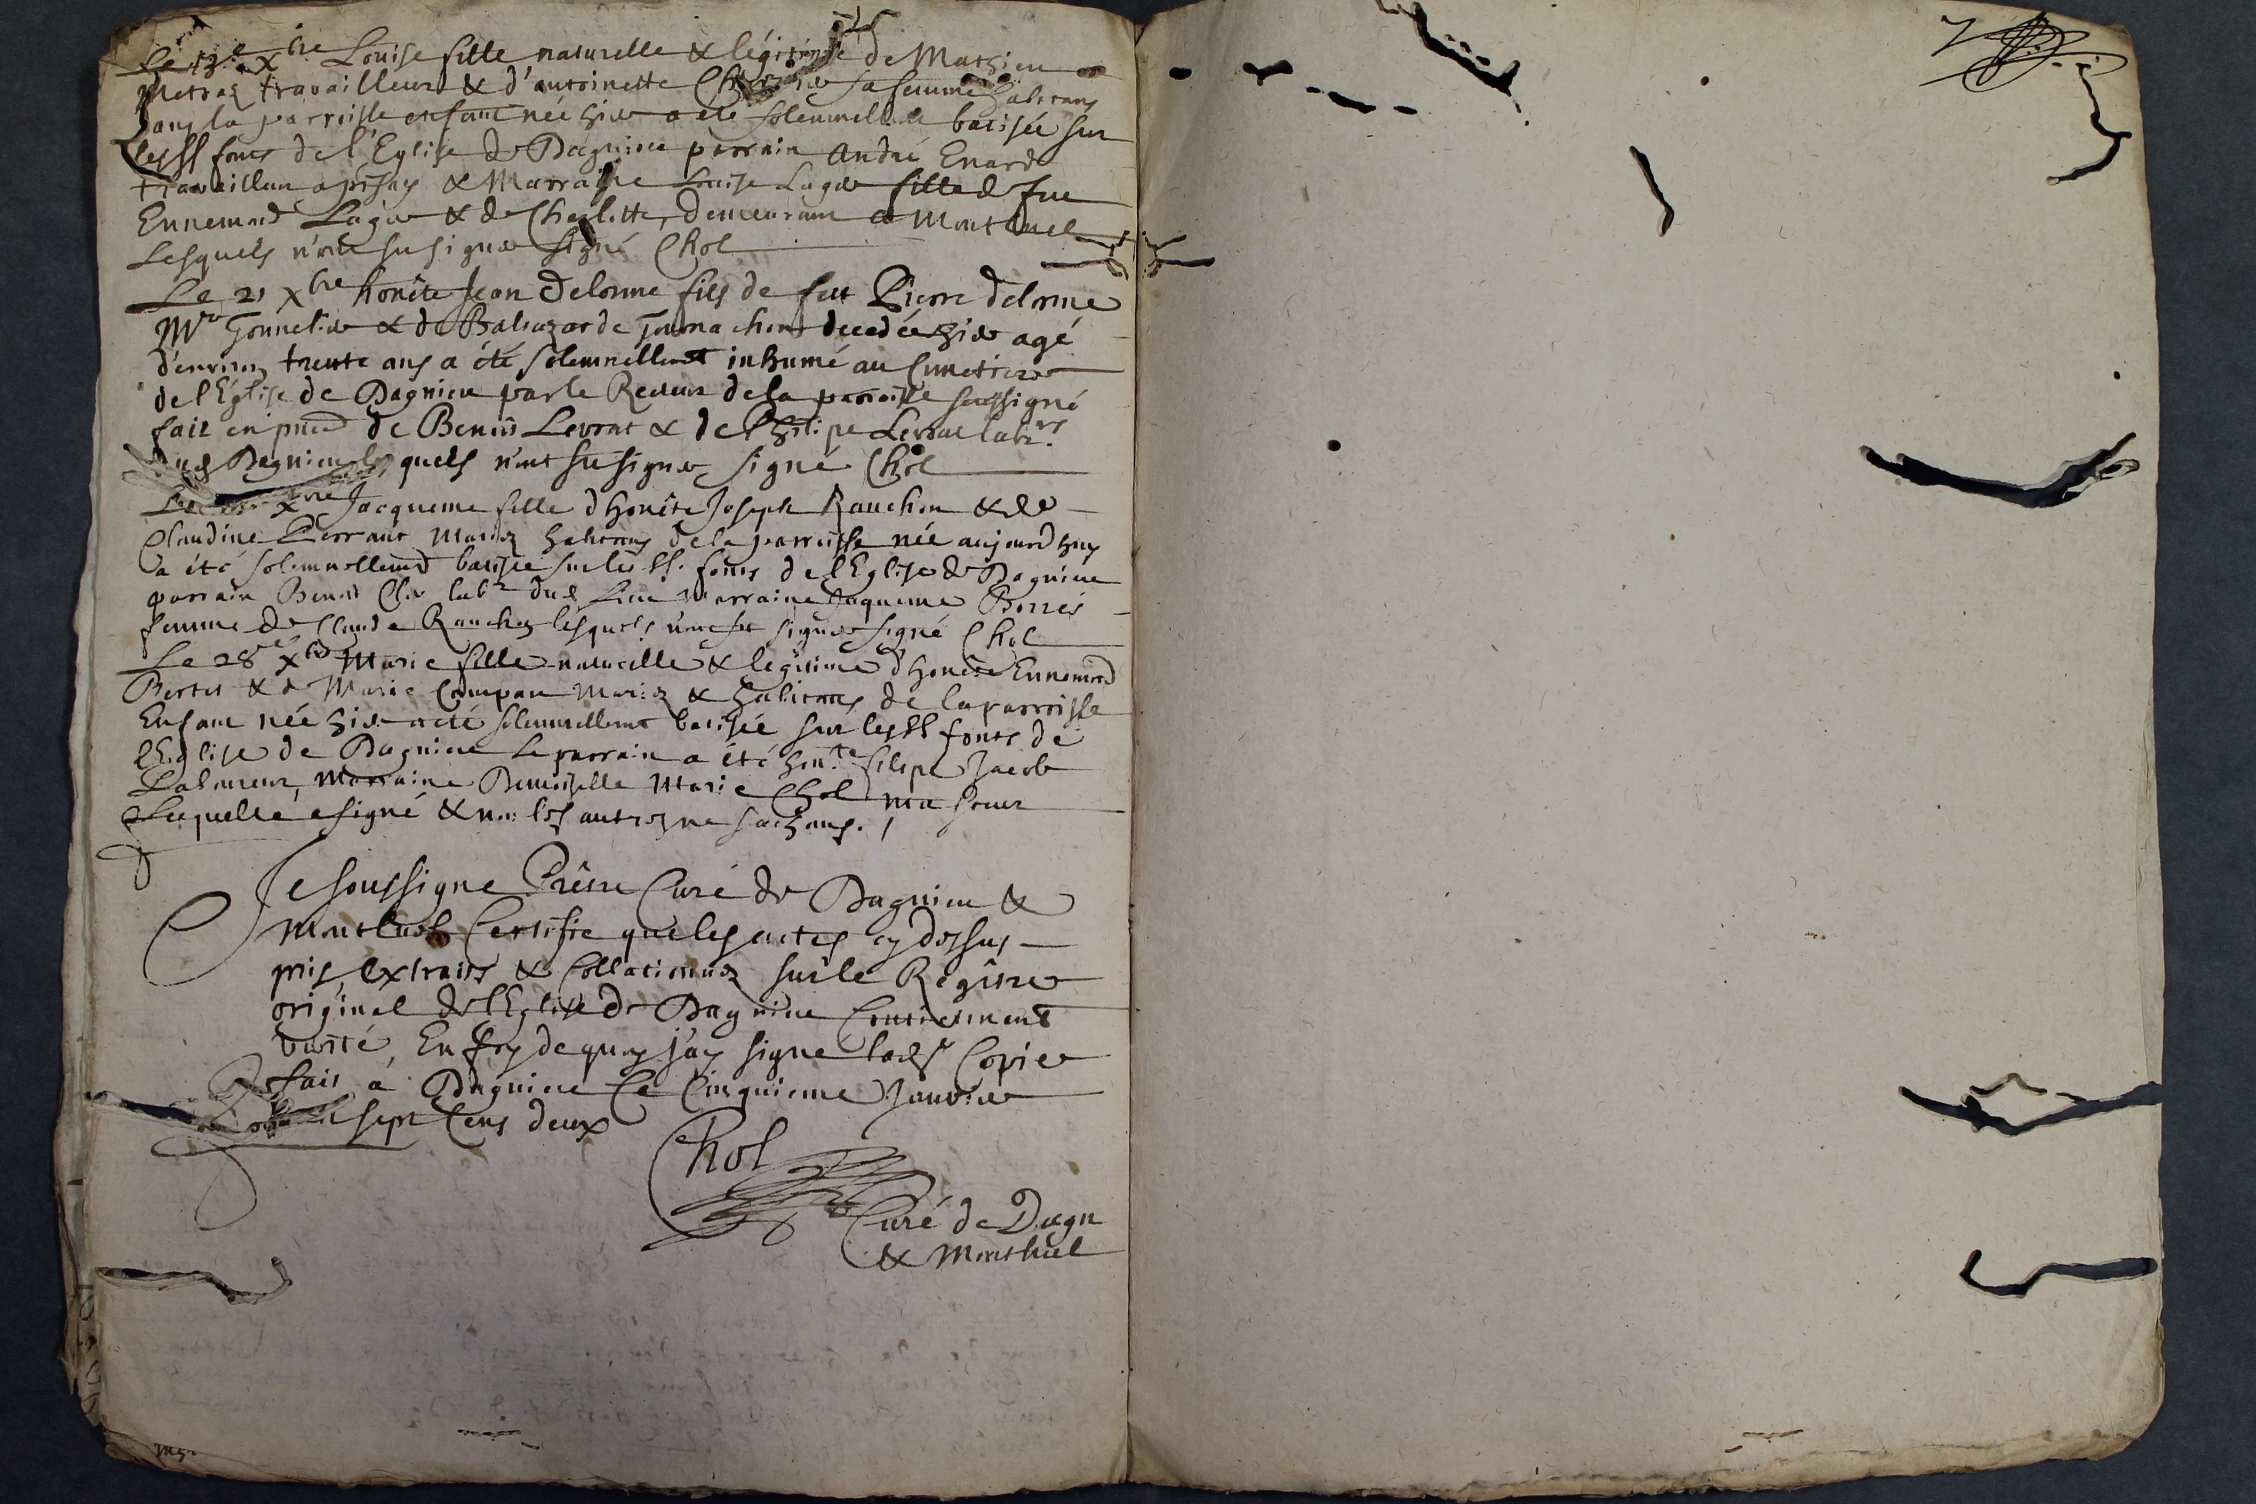 Le 13e xbre Louise fille naturelle & légitime de Mathieu
Metraz travailleur & d'antoinette sa femme habitans
dans la parroisse enfant née hier a été solemnellemt batisée sur
les SS fonts de l'Eglise de Dagnieu parrain André Enard
travailleur a pisay & Marraine Louise Lage fille de fue
Ennemond Lage & de Charlotte, demeurant a Montluel
Lesquels n'ont su signer signé Chol
Le 21 xbre honête Jean Delorme fils de feu Pierre delorme
Mre & de Baltazarde decedée hier agé
d'environ trente ans a été solemnellemt inhumé au Cimetiere
de l'Église de Dagnieu par le Recteur de la parroisse soussigné
fait en pnce de Benoit Levrat & de Philipe Levrat labrs
dud Dagnieu lesquels n'ont su signer signé Chol
Le xbre Jacqueme fille d'honête Joseph Rauchon & de
Claudine Perrant Mariez habitans de la parroisse née aujourdhuy
a été solemnellemt batisée sur les SS. fonts de l'Eglise de Dagnieu
parrain Benoit labr dud lieu Marraine Jaqueme Borres
femme de Claude Rauchon lesquels n'ont su signer signé Chol
Le 28e xbre Marie fille naturelle & legitime d'honête Ennemond
Bertet & de Marie Compan Mariez & habitans de la parroisse
Enfant née hier a été solemnellemt batisée sur les SS fonts de
l'Eglise de Dagnieu Le parrain a été honte filipe Jacob
Laboureur, Marraine Demoiselle Marie Chol ma soeur
Laquelle a signé & non les autres ne sachans.
Je soussigne Prêtre Curé de Dagnieu &
Montluel Certifie que les actes cy dessus
pris, extraits & Collationnez sur le Regître
original de l'Eglise de Dagnieu Contiennent
verité, En foy de quoy j'ay signe lad. Copie
fait à Dagnieu Ce Cinquieme Janvier
sept Cens deux
Chol
Curé de Dagn
& Montluel
7